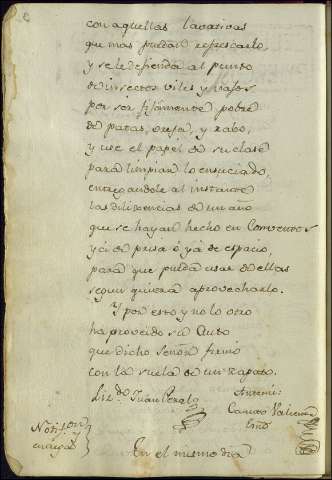 con aquellas lavativas
que mas puedan refrescarlo,
y se le defienda al punto
de insectos viles y vajos
por ser fijamente pobre
de patas, oreja, y rabo,
y use el papel de su clase
para limpiar lo ensuciado,
entregandole al instante
las dilixencias de un año
que se hayan hecho en Conventos
yá de prisa ó yá de espacio,
para que pueda usar de ellas
segun quiera aprovecharlo.
Y por esto y no lo otro
ha proveido su Auto
que dicho Señor firmó
con la suela de un zapato.
Liz.do Juan Peralo
Antemi:
Camaro Valiente
Notis.on y
encargo
En el mismo dia